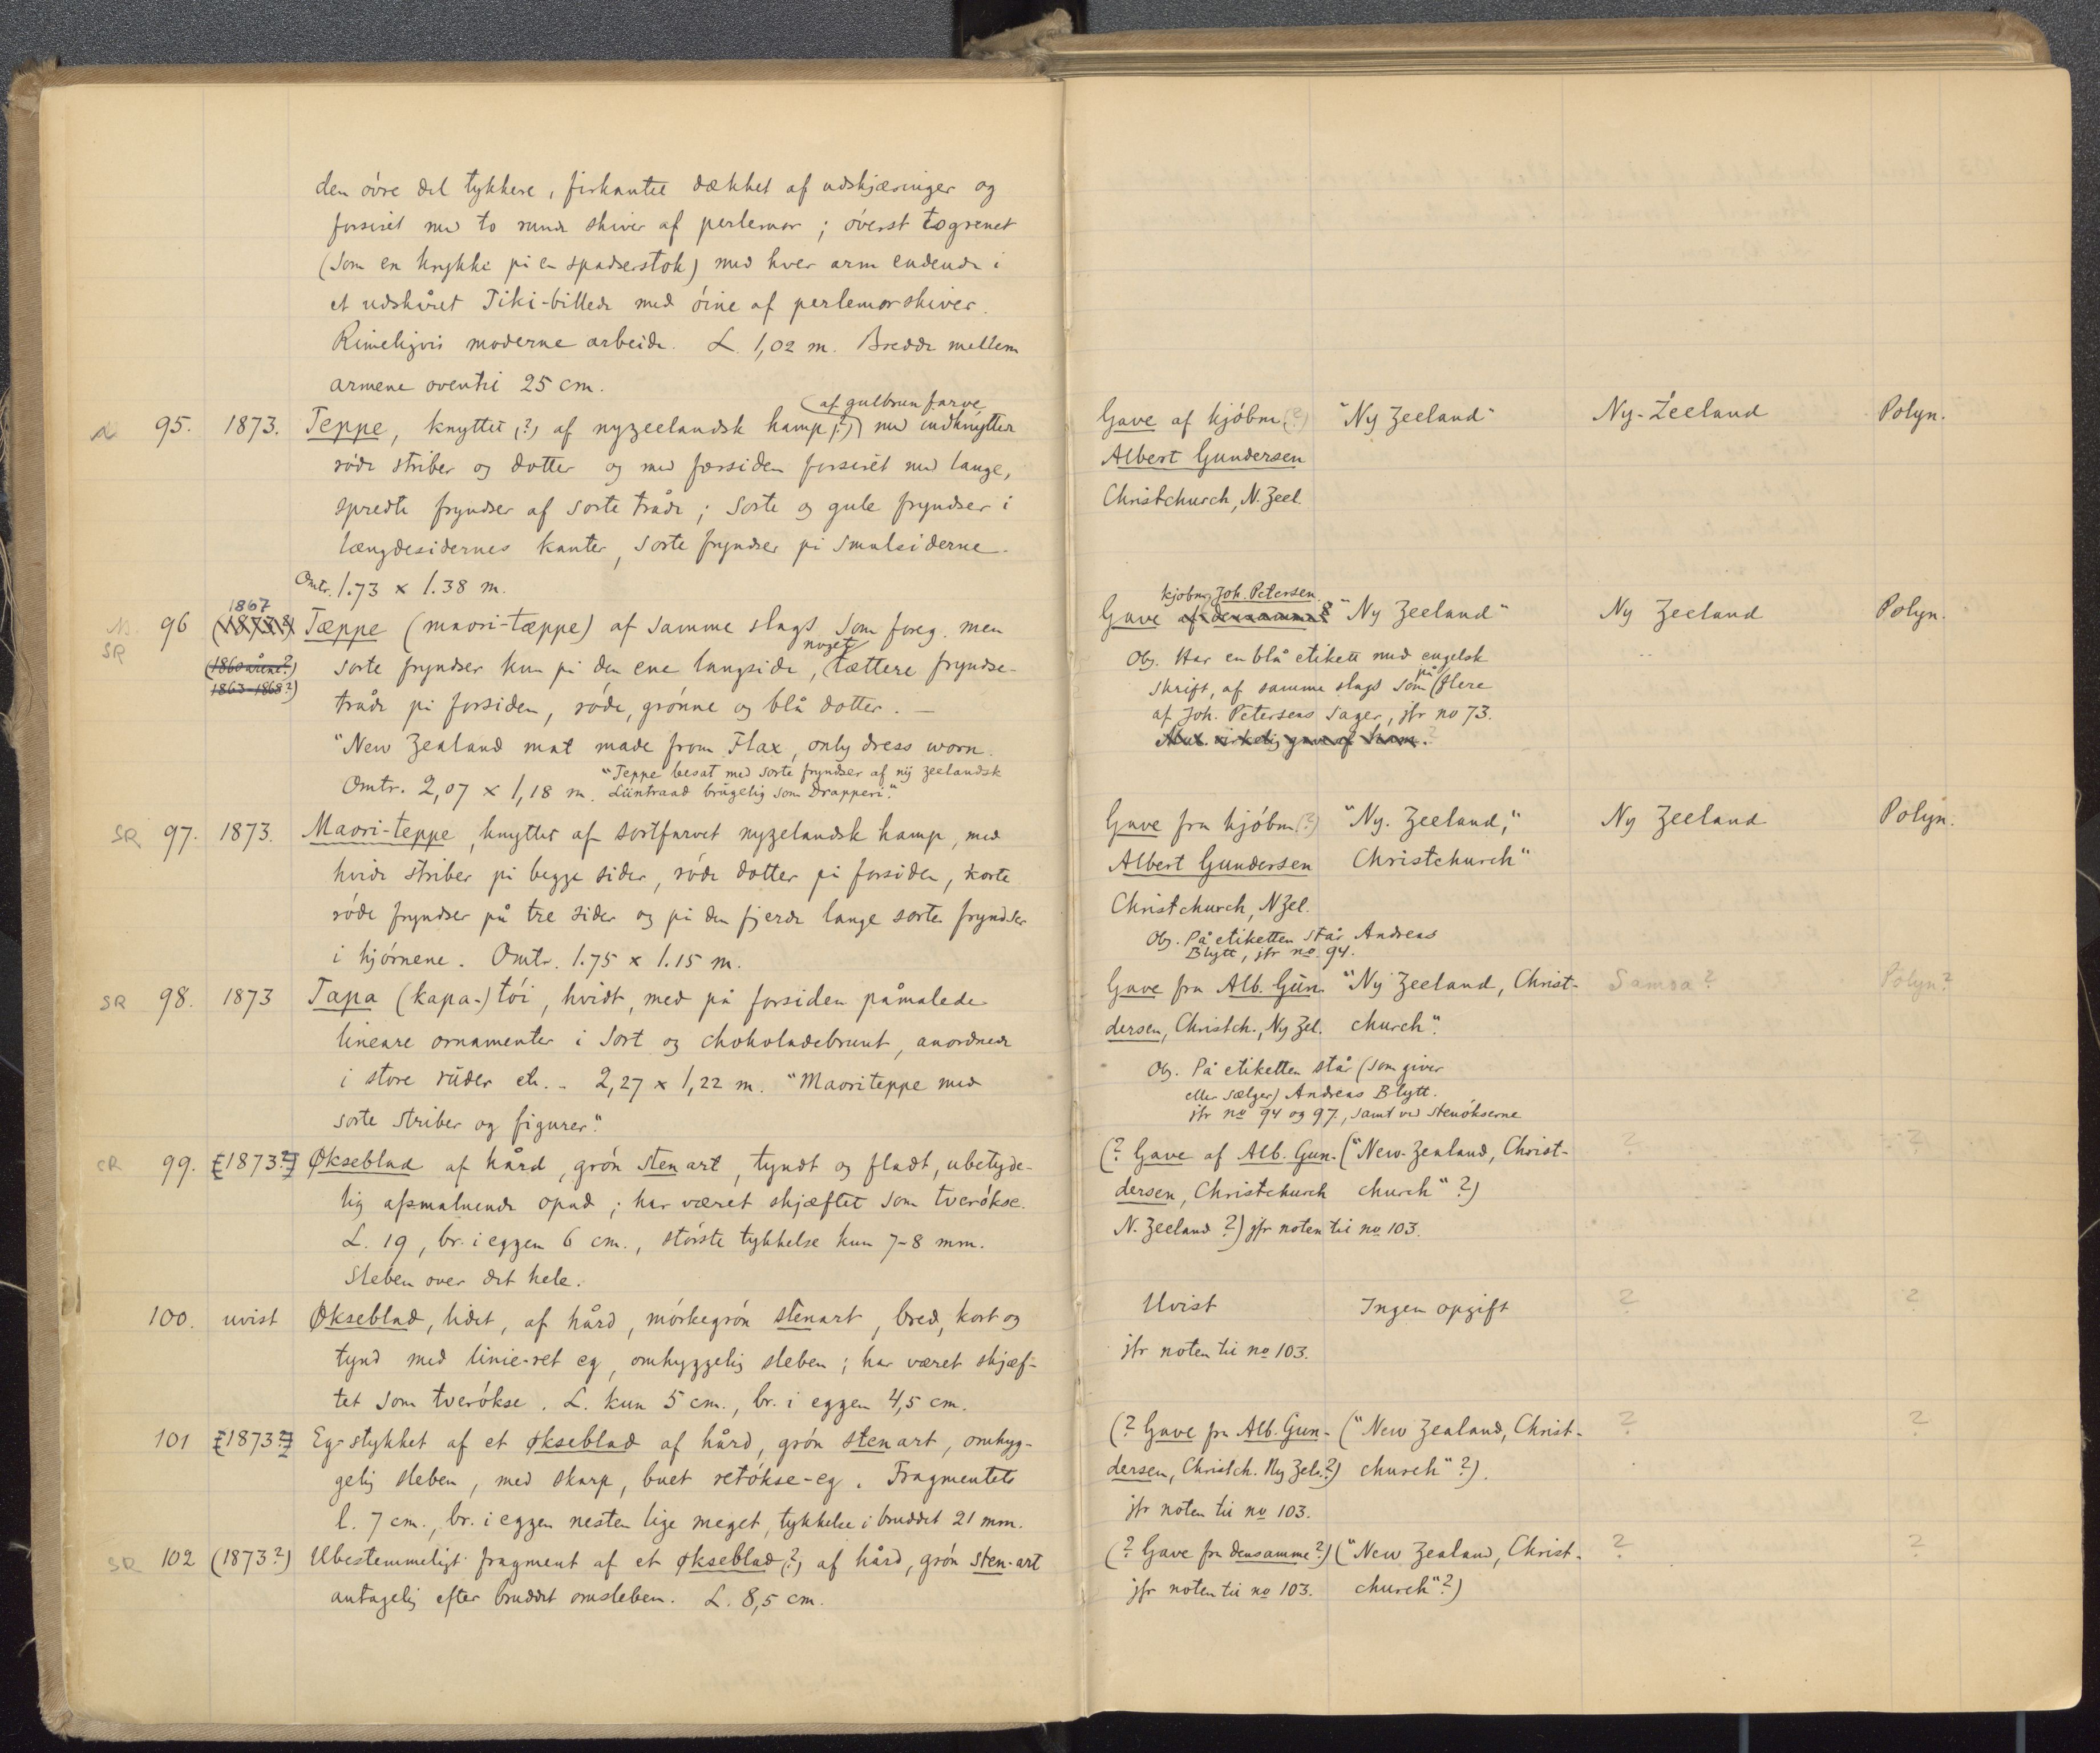 den óvre del tykkere, firkantet dækket af udskjæringer og
forsiret med to runde skiver af perlemor; óverst togrenet
(som en krykke på en spadserstok) med hver arm endende i
et udskåret Tiki-billede med óine af perlemorskiver.
Rimeligvis moderne arbeide. L. 1,02 m. Bredde mellem
armene oventil 25 cm.
95. 1873. Teppe, knyttet (?) af nyzeelandsk hamp (?) af gulbrun farve med indknyttet
róde striber og dotter og med forsiden forsiret med lange,
spredte fryndser af sorte tråde; sorte og gule fryndser i
længdesidernes kanter, sorte fryndser på smalsiderne.
Omtr. 1.73 x 1.38 m.
Gave af kjóbm. (?) "Ny Zeeland" Ny-Zeeland Polyn.
Albert Gundersen
Christchurch, N. Zeel.
1867
SR 96 (1873?) Tæppe (maori-tæppe) af samme slags som foreg. men
(1860 årene?) sorte fryndser kun på den ene langside, noget tættere fryndse-
1863-1868?) tråde på forsiden, róde, grónne og blå dotter. —
"New Zealand mat made from Flax, only dress worn.
Omtr. 2,07 x 1,18 m. "Teppe besat med sorte fryndser af nÿ zeelandsk
Liintraad brügelig som Drapperi."
kjobm. Joh. Petersen
Gave af densamme? "Ny Zeeland" Ny Zeeland Polyn.
Obs. Har en blå etikett med engelsk
skrift, af samme slags som på flere
af Joh. Petersens sager, jfr no 73.
SR 97. 1873. Maori-teppe, knyttet af sortfarvet nyzelandsk hamp, med
hvide striber på begge sider, róde dotter på forsiden, korte
róde fryndser på tre sider og på den fjerde lange sorte fryndser
i hjórnene. Omtr. 1.75 x 1.15 m.
Gave fra kjóbm. (?) "Ny. Zeeland," Ny Zeeland Polyn.
Albert Gundersen Christchurch"
Christchurch, N Zel.
Obs. På etiketten står Andreas
Blytt, jfr no 94.
SR 98. 1873 Tapa (kapa-) tói, hvidt, med på forsiden påmalede
lineare ornamenter i sort og chokoladebrunt, anordnede
i store rüder etc. - 2,27 x 1,22 m. "Maoriteppe med
sorte striber og figurer."
Gave fra Alb. Gün- "Ny Zeeland, Christ- Samoa? Polyn?
dersen, Christch., Ny Zel. church".
Obs. På etiketten står (som giver
eller sælger) Andreas Blytt.
jfr no 94 og 97, samt ved stenókserne
SR 99. [1873?] Økseblad af hård, grón stenart, tyndt og fladt, ubetyde-
lig afsmalnende opad; har været skjæftet som tverókse.
L. 19, br. i eggen 6 cm., stórste tykkelse kun 7-8 mm.
Sleben over det hele.
(? Gave af Alb. Gun- ("New-Zealand, Christ- ? ?
dersen, Christchurch church"?)
N. Zeeland ?) jfr noten til no 103.
100. uvist Økseblad, lidet, af hård, mórkegrón stenart, bred, kort og
tynd med linie-ret eg, omhyggelig sleben; har været skjæf-
tet som tverókse. L. kun 5 cm., br. i eggen 4,5 cm.
Uvist Ingen opgift ? ?
jfr noten til no 103.
101 [1873?] Eg-stykket af et økseblad af hård, grón stenart, omhyg-
gelig sleben, med skarp, buet retókse-eg. Fragmentets
l. 7 cm., br. i eggen nesten lige meget, tykkelse i bruddet 21 mm.
(? Gave fra Alb. Gun- ("New Zealand, Christ- ? ?
dersen, Christch. Ny Zel.?) church"?).
jfr noten til no 103.
SR 102 (1873?) Ubestemmeligt fragment af et økseblad (?) af hård, grón sten-art
antagelig efter bruddet omsleben. L. 8,5 cm.
(? Gave fra densamme?) ("New Zealand, Christ- ? ?
jfr noten til no 103. church"?)